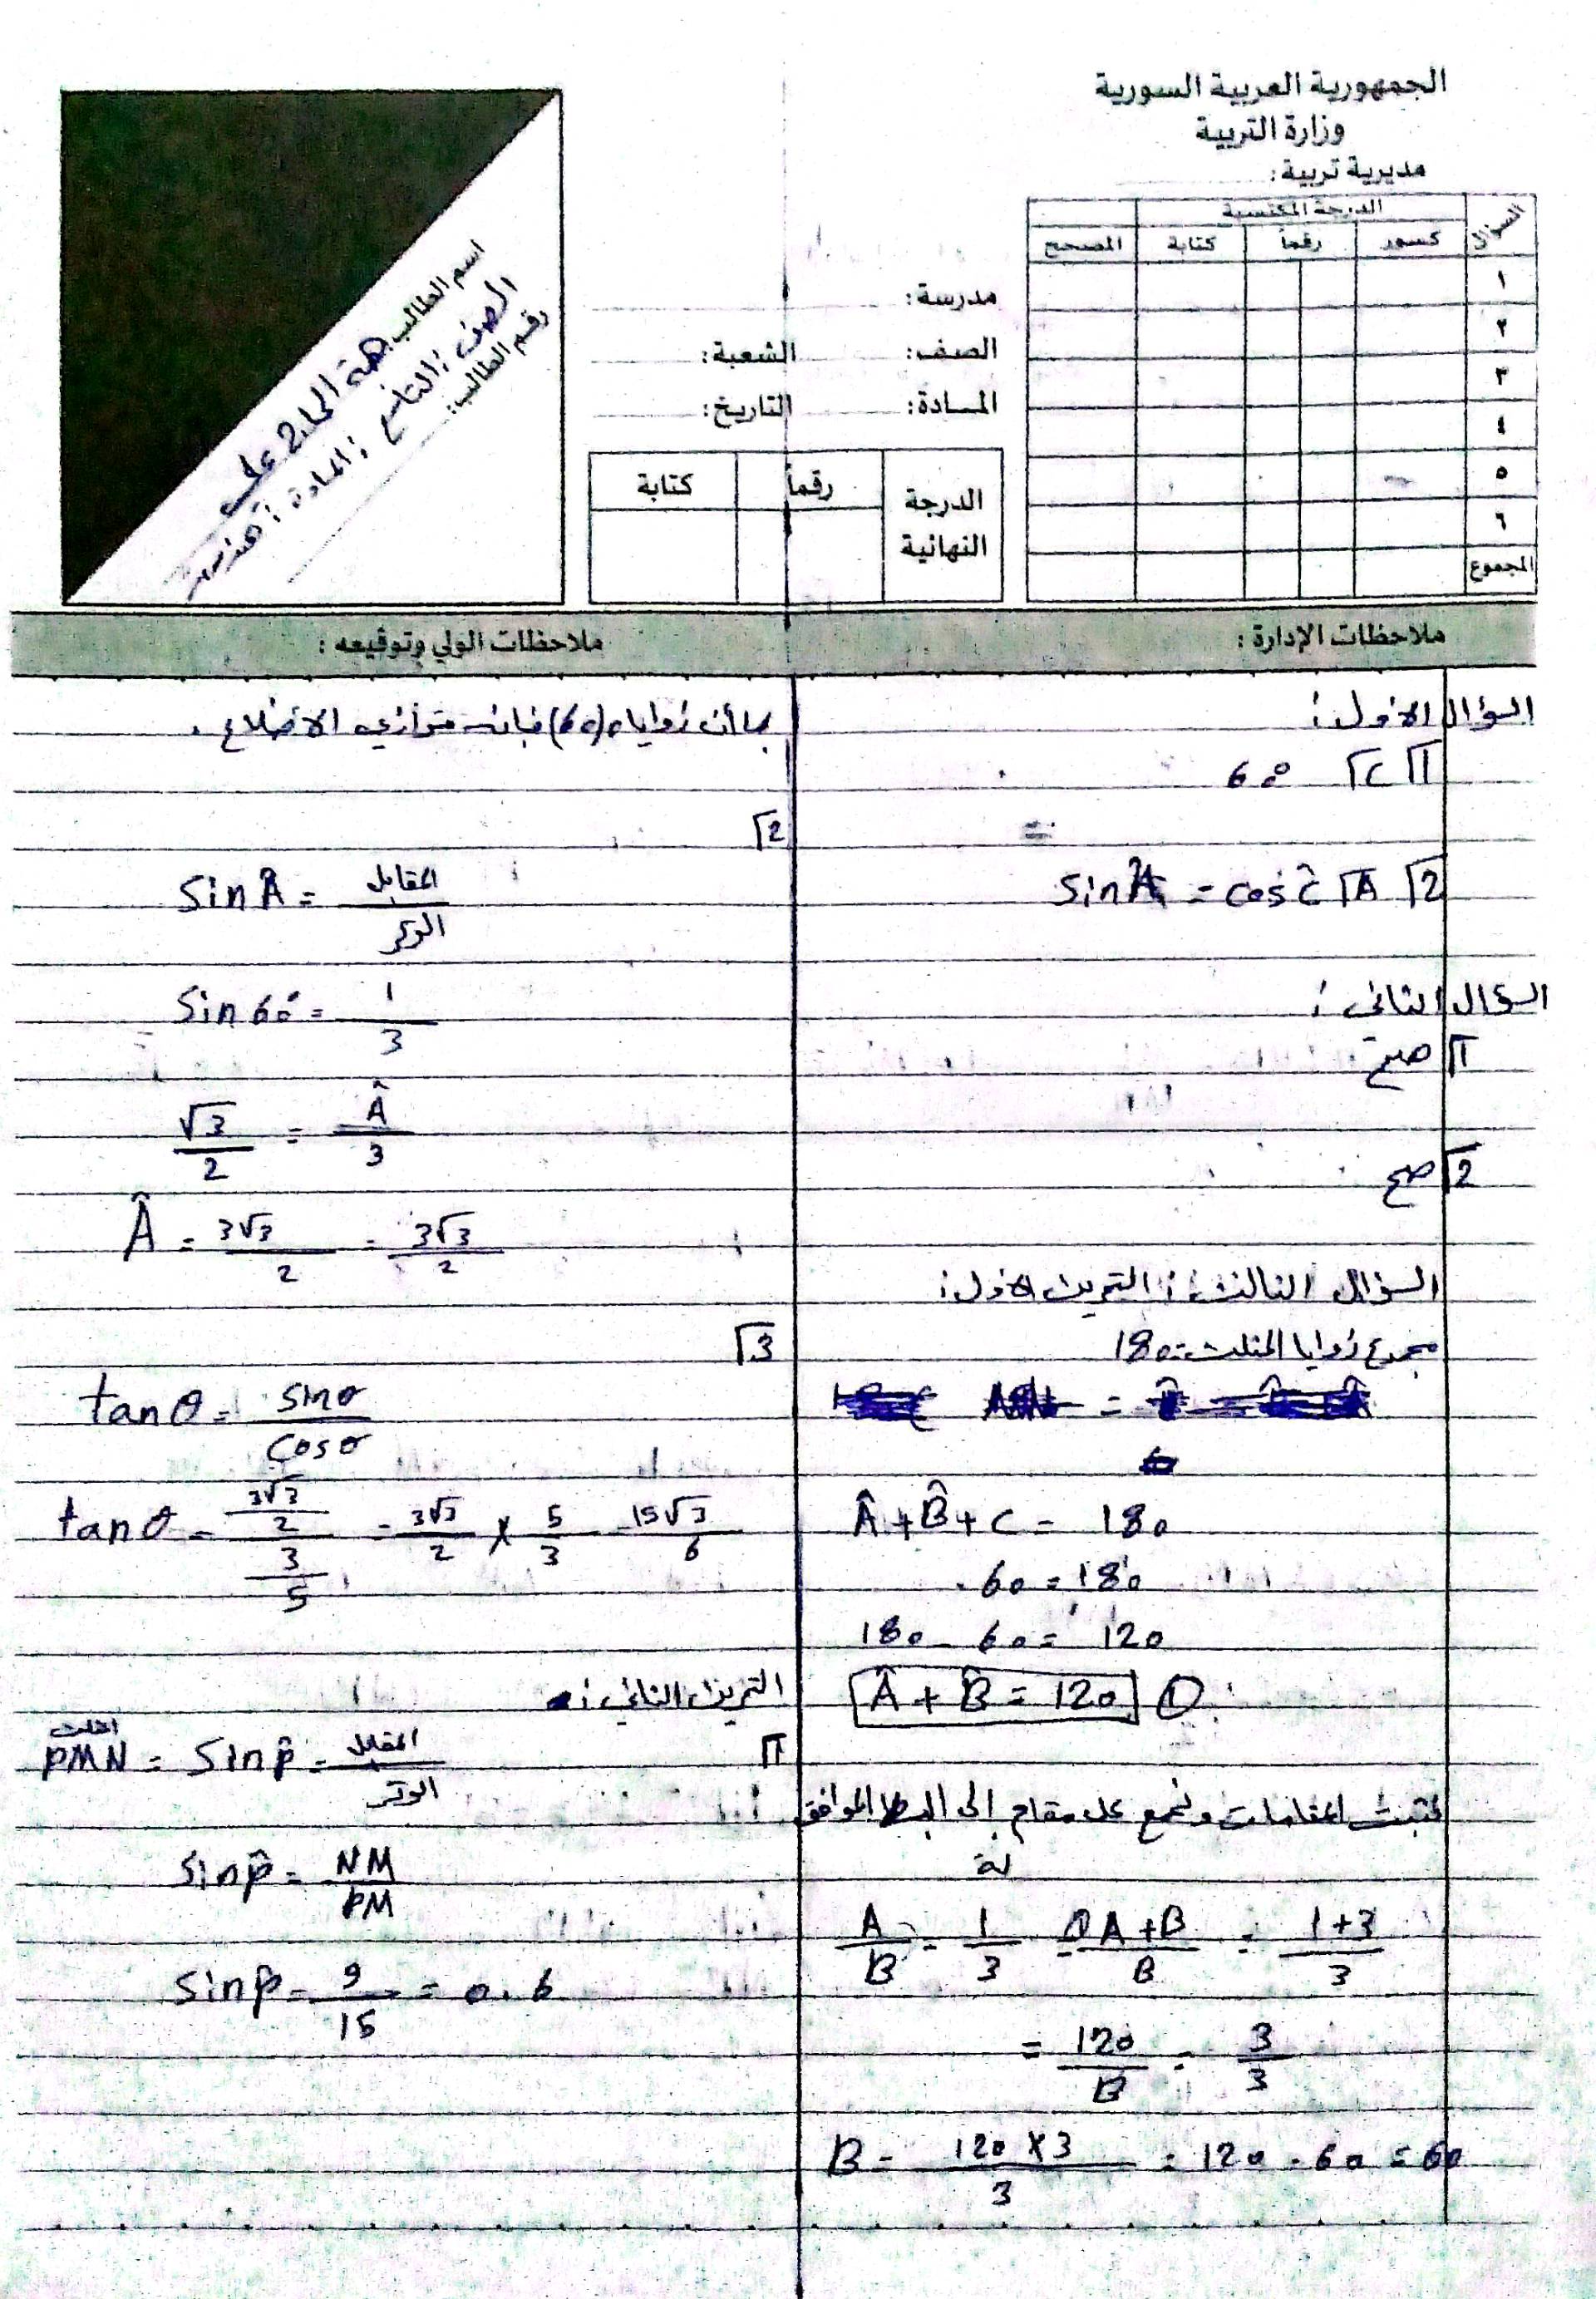 الجمهورية العربية السورية
وزارة التربية
مديرية تربية:
السؤال
الدرجة المكتسبة
كسور
رقماً
كتابة
المصحح
١
٢
٣
٤
٥
٦
المجموع
مدرسة:
الصف:
الشعبة:
المادة:
التاريخ:
الدرجة النهائية
رقماً
كتابة
اسم الطالب: هبة
الصف: التاسع: المادة: هندسة
رقم الطالب:
ملاحظات الإدارة:
ملاحظات الولي وتوقيعه:
السؤال الاول:
1 C 60°
2 A sin Â = cos Ĉ
السؤال الثاني:
1 صح
2 صح
السؤال الثالث: التمرين الاول:
مجموع زوايا المثلث = 180
Â + B̂ + C = 180
60 = 180
180 - 60 = 120
Â + B̂ = 120 ①
نثبت المقامات ونجمع كل مقام إلى البسط الموافق
له
A/B = 1/3 = A+B/B = 1+3/3
= 120/B = 3/3
B = 120 × 3/3 = 120 - 60 = 60
بما أن زواياه (60) فإنه متوازي الاضلاع.
2
sin Â = المقابل/الوتر
sin 60° = 1/3
√3/2 = Â/3
Â = 3√3/2 = 3√3/2
3
tan θ = sin θ/cos θ
tan θ = (3√3/2)/(3/5) = 3√3/2 × 5/3 = 15√3/6
التمرين الثاني:
1
المثلث PMN = sin p̂ = المقابل/الوتر
sin p̂ = NM/PM
sin p̂ = 9/15 = 0.6